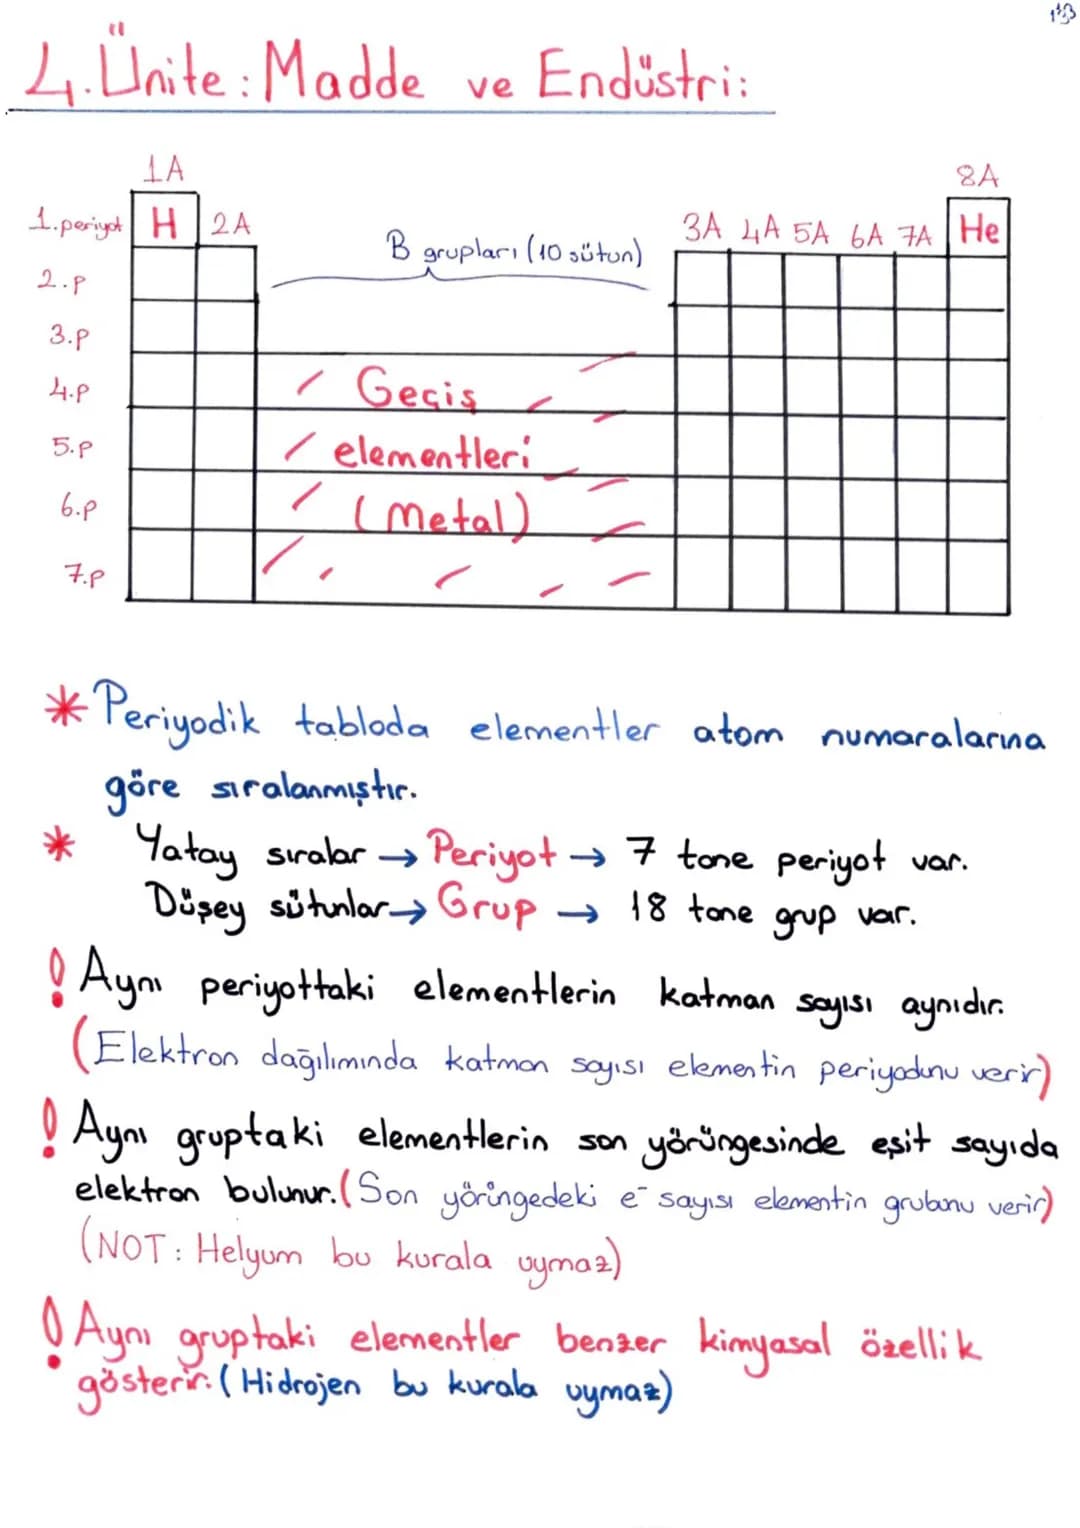 4.Ünite: Madde ve Endüstri:
1A
8A
1.periyot H 2A
B grupları (10 sütun)
3A 4A 5A 6A 7A He
2.p
3.p
4.p
Geçiş
5.p
elementleri
6.p
(Metal)
7.p
* Periyodik tabloda elementler atom numaralarına
göre sıralanmıştır.
* Yatay sıralar → Periyot → 7 tane periyot var.
Düşey sütunlar → Grup → 18 tane grup var.
! Aynı periyottaki elementlerin katman sayısı aynıdır.
(Elektron dağılımında katman sayısı elementin periyodunu verir)
! Aynı gruptaki elementlerin son yörüngesinde eşit sayıda
elektron bulunur. (Son yörüngedeki e⁻ sayısı elementin grubunu verir)
(NOT: Helyum bu kurala uymaz)
! Aynı gruptaki elementler benzer kimyasal özellik
gösterir. (Hidrojen bu kurala uymaz)